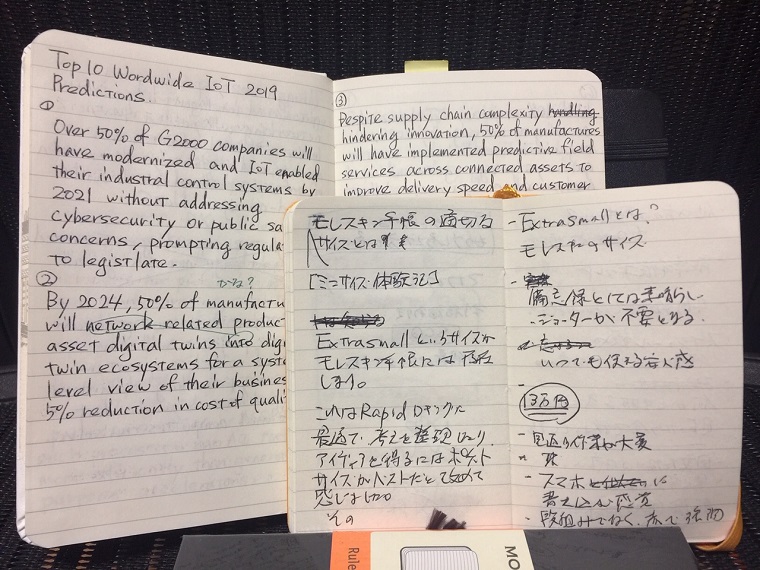 Top 10 Wordwide IoT 2019
Predictions.
①
Over 50% of G2000 companies will
have modernized and IoT enabled
their industral control systems by
2021 without addressing
cybersecurity or public sa
concerns, prompting regula
to legistlate.
②
By 2024, 50% of manufactu
will network related produc
asset digital twins into dig
twin ecosystems for a syste
level view of their busines
5% reduction in cost of quali
③
Despite supply chain complexity handling
hindering innovation, 50% of manufactures
will have implemented predictive field
services across connected assets to
improve delivery speed and customer
モレスキン手帳の適切な
サイズとは
[ミニサイズ体験記]
Extrasmallというサイズが
モレスキン手帳には存在
します。
これはRapidロギングに
最適で、考えを整理したり、
アイディアを得るにはポケット
サイズがベストだと改めて
感じました。
その
- Extrasmallとは?
モレスキンのサイズ
備忘録としては素晴らし
ジョッターが不要となる
いつでも使える安心感
-
- スマホ に
書き込む感覚
- 段組みでなく、
Rule
MO